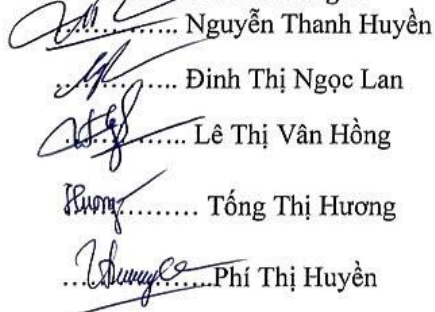 Nguyễn Thanh Huyền
Đinh Thị Ngọc Lan
Lê Thị Vân Hồng
Hương......... Tống Thị Hương
Phí Thị Huyền